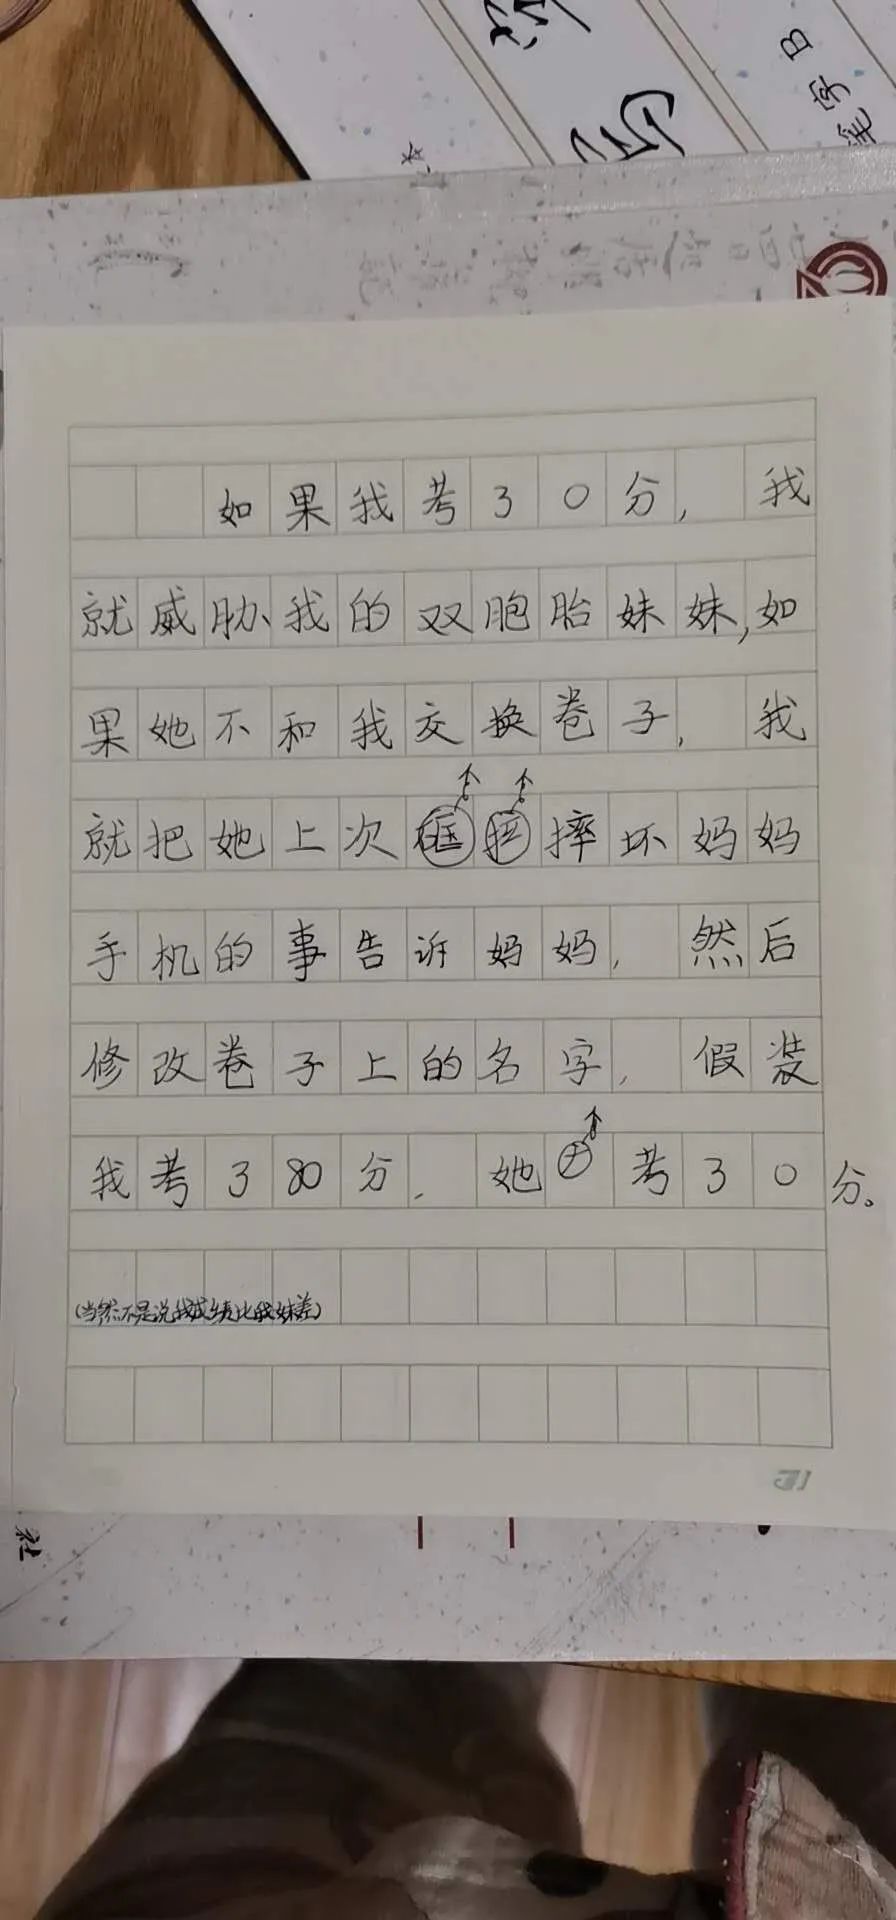 如果我考30分，我
就威胁我的双胞胎妹妹,如
果她不和我交换卷子，我
就把她上次摔坏妈妈
手机的事告诉妈妈，然后
修改卷子上的名字，假装
我考380分，她考30分。
(当然不是说我成绩比我妹差)
社